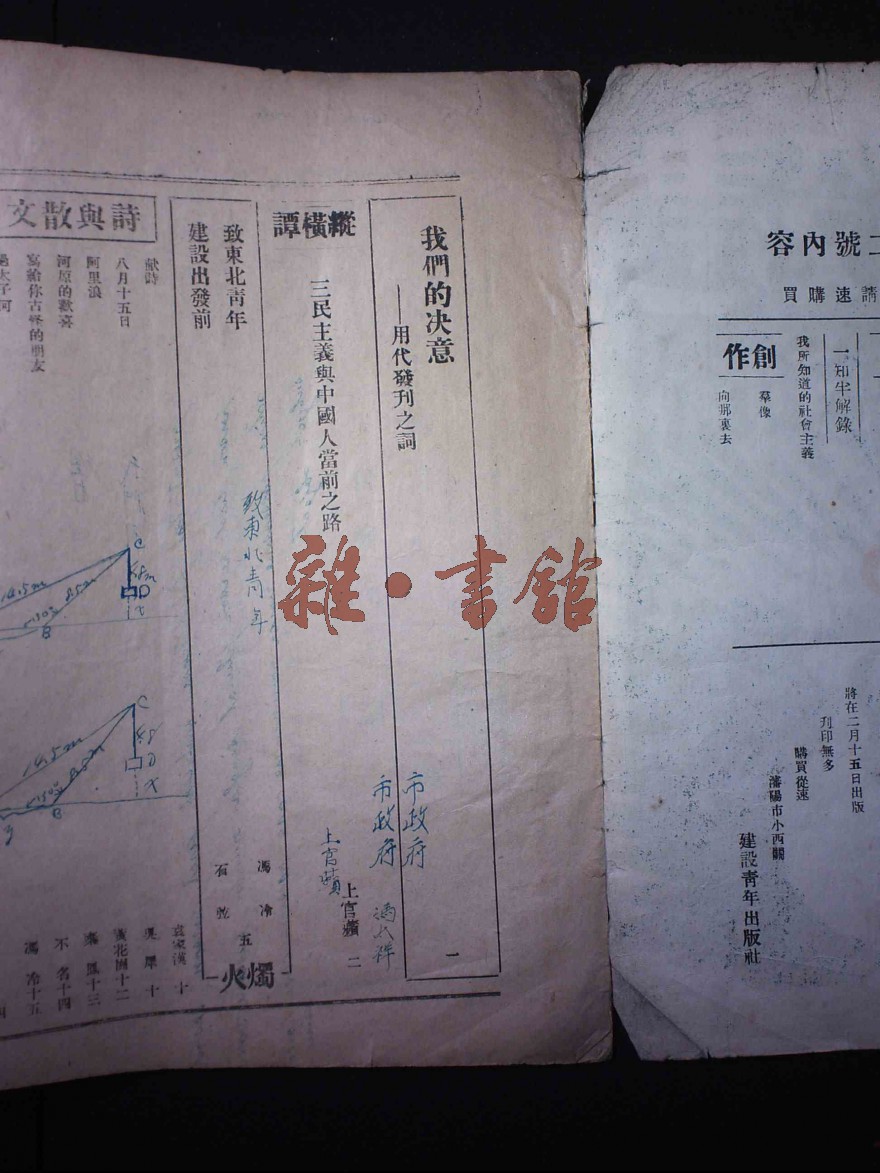 二號內容
請速購買
一知半解錄
我所知道的社會主義
創作
羣像
向那裏去
將在二月十五日出版
刊印無多
購買從速
瀋陽市小西關
建設青年出版社
我們的決意
——用代發刊之詞
一
縱橫譚
三民主義與中國人當前之路
上官蘋 二
燭火
致東北青年
馮冷
建設出發前
石乾
五
詩與散文
献詩
袁家漢 十
八月十五日
吳犀 十
阿里浪
黃花圃十二
河原的歡喜
不名十四
寫給你古怪的朋友
馮冷十五
過太子河
致東北青年
市政府
市政府
上官蘋
雜·書館
14.5m
8.5m
C
B
D
x
14.5m
8.5m
C
B
D
x